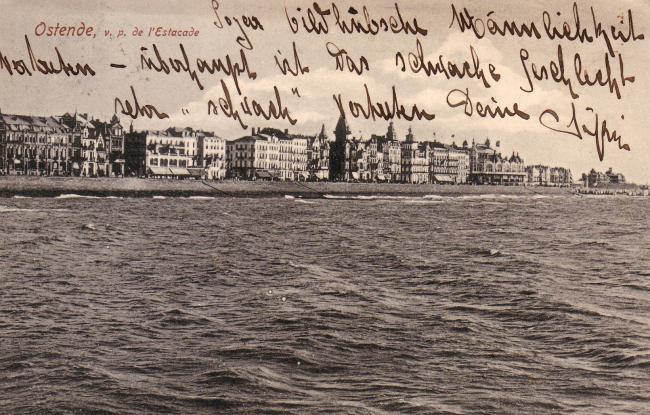 Ostende, v. p. de l'Estacade
Sogar bildhübsche Männlichkeit
vorhanden – überhaupt ist das schwache Geschlecht
sehr „schwach“ vorhanden Deine